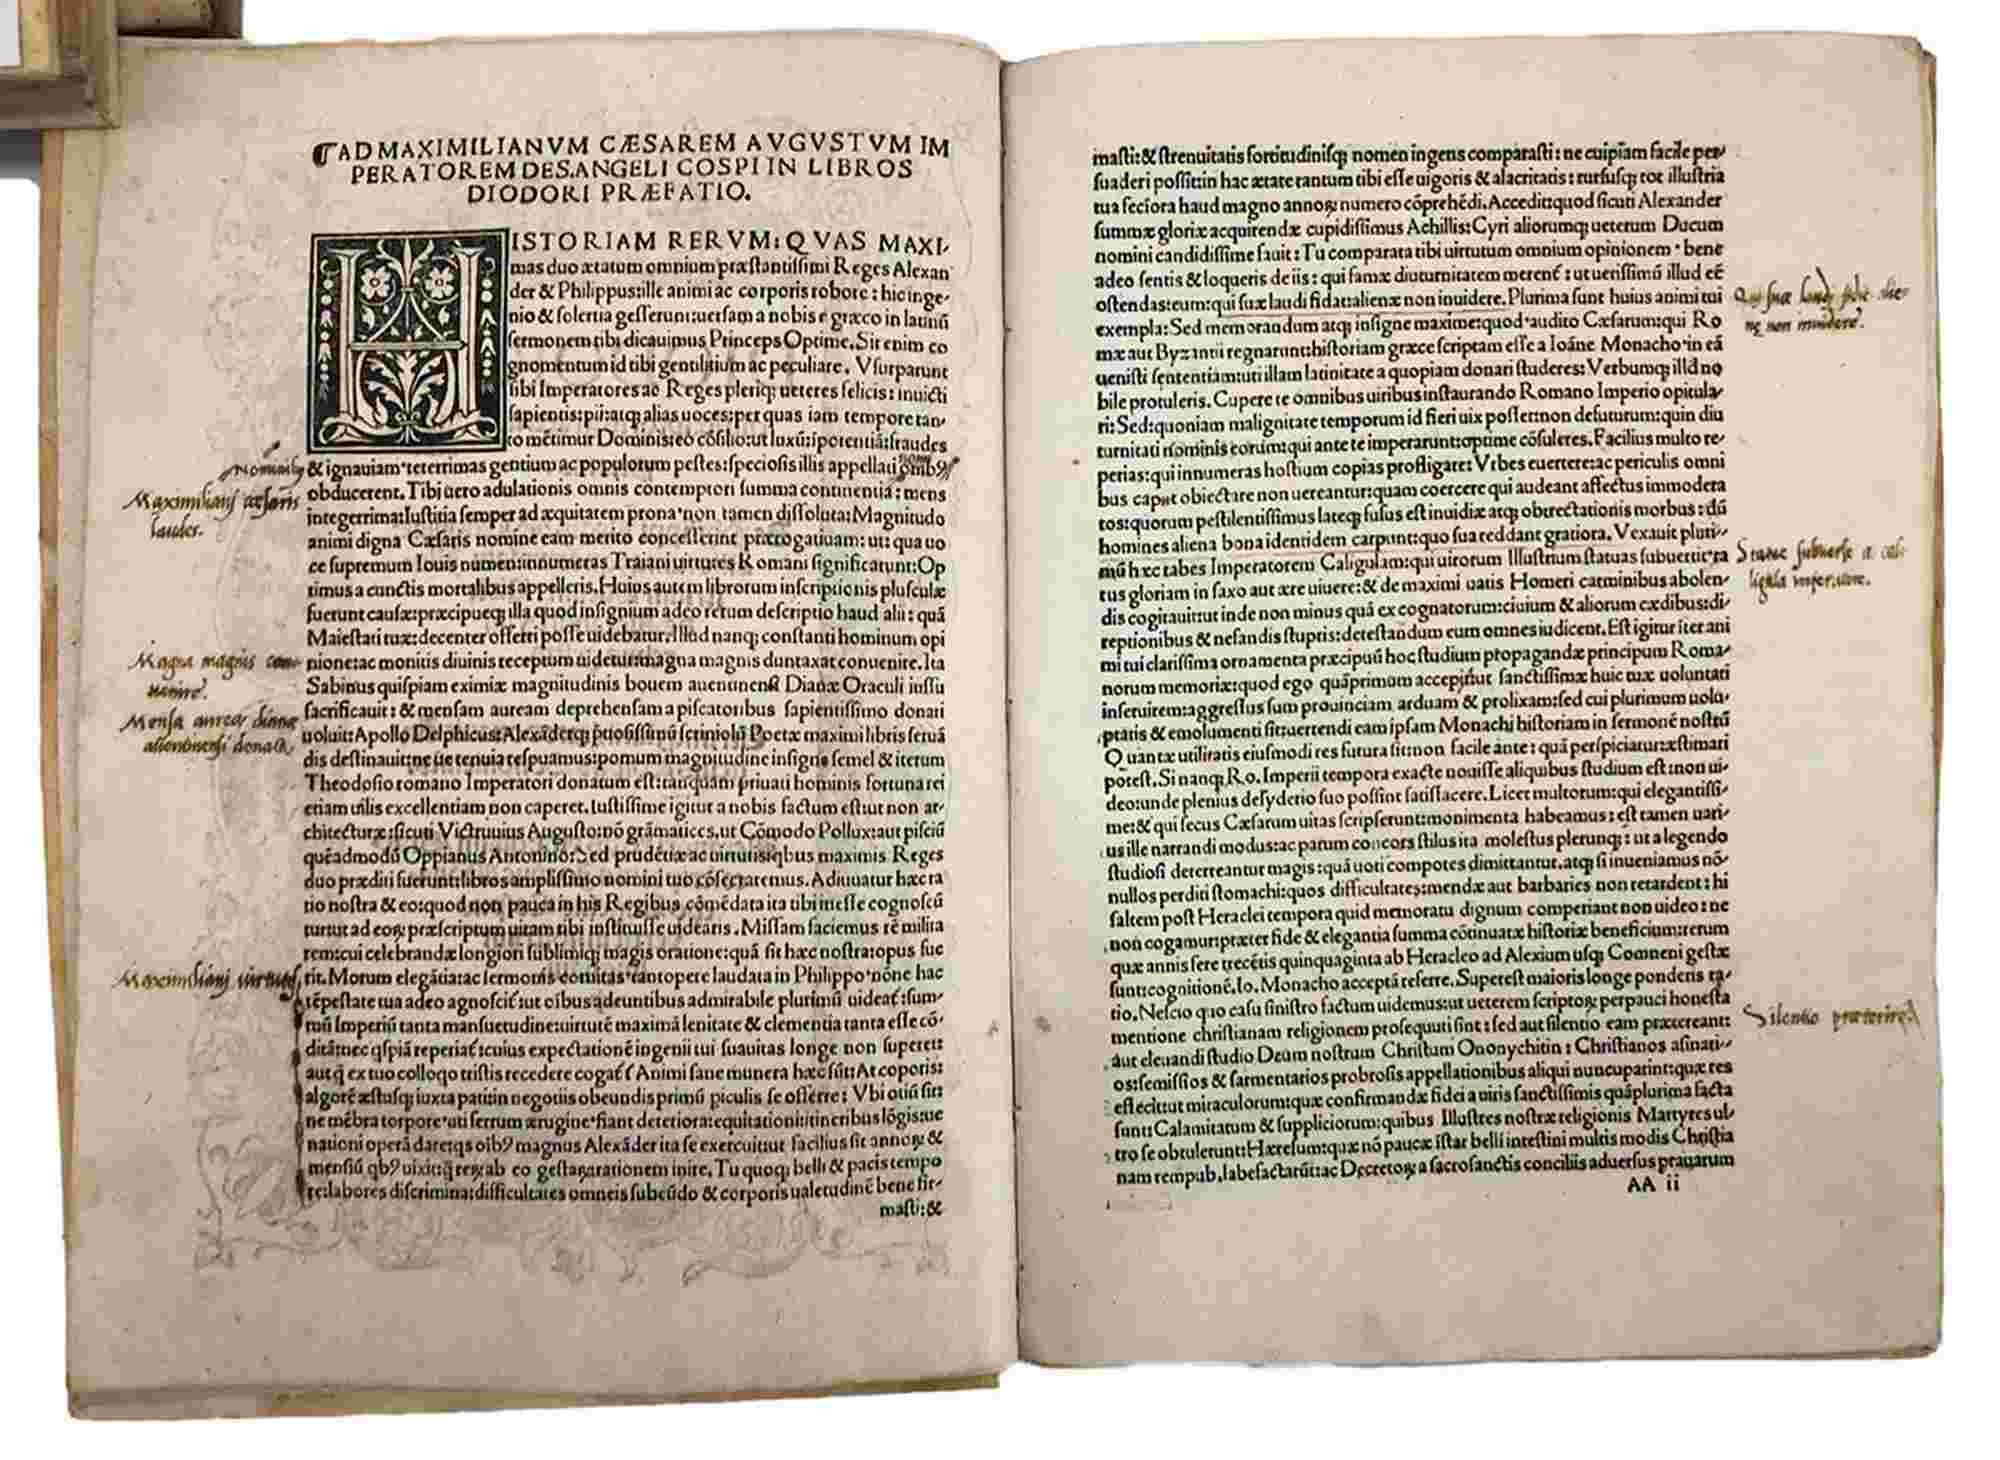 AD MAXIMILIANVM CÆSAREM AVGVSTVM IM
PERATOREM DES.ANGELI COSPI IN LIBROS
DIODORI PRÆFATIO.
HISTORIAM RERVM: QVAS MAXI-
mas duo ætatum omnium præstantissimi Reges Alexan
der & Philippus: ille animi ac corporis robore: hic inge-
nio & solertia gesserunt: uersam a nobis e græco in latinũ
sermonem tibi dicauimus Princeps Optime. Sit enim co
gnomentum id tibi gentilitium ac peculiare. Vsurparunt
sibi Imperatores ac Reges pleriq; ueteres felicis: inuicti
sapientis: pii: atq; alias uoces: per quas iam tempore tan-
to mẽtimur Dominis: eo cõsilio: ut luxũ: ĩpotentiã: fraudes
& ignauiam teterrimas gentium ac populorum pestes: speciosis illis appellatiõnibꝰ
obducerent. Tibi uero adulationis omnis contemptori summa continentia: mens
integerrima: Iustitia semper ad æquitatem prona non tamen dissoluta: Magnitudo
animi digna Cæsaris nomine eam merito concesserint prærogatiuam: ut: qua uo
ce supremum Iouis numen: innumeras Traiani uirtutes Romani significarunt: Op
timus a cunctis mortalibus appelleris. Huius autem librorum inscriptionis plusculæ
fuerunt causæ: præcipueq; illa quod insignium adeo rerum descriptio haud alii: quã
Maiestati tuæ: decenter offerri posse uidebatur. Illud nanq; constanti hominum opi
nione: ac monitis diuinis receptum uidetur: magna magnis duntaxat conuenire. Ita
Sabinus quispiam eximiæ magnitudinis bouem auentinensi Dianæ Oraculi iussu
sacrificauit: & mensam auream deprehensam a piscatoribus sapientissimo donari
uoluit: Apollo Delphicus: Alexãderq; p̃tiosissimũ scriniolũ Poetæ maximi libris seruã
dis destinauit: ne ue tenuia respuamus: pomum magnitudine insigne semel & iterum
Theodosio romano Imperatori donatum est: tanquam priuati hominis fortuna rei
etiam uilis excellentiam non caperet. Iustissime igitur a nobis factum est: ut non ar-
chitecturæ: sicuti Victruuius Augusto: nõ grãmatices, ut Cõmodo Pollux: aut pisciũ
quẽadmodũ Oppianus Antonino: Sed prudẽtiæ ac uirtutis: qbus maximis Reges
duo præditi fuerunt: libros amplissimo nomini tuo cõsecraremus. Adiuuatur hæc ra
tio nostra & eo: quod non pauca in his Regibus cõmẽdata ita tibi inesse cognoscũ
tur: ut ad eoꝝ præscriptum uitam tibi instituisse uidearis. Missam faciemus rẽ milita
rem: cui celebrandæ longiori sublimiq; magis oratione: quã sit hæc nostra: opus fue
rit. Morum elegãtia: ac sermonis comitas tantopere laudata in Philippo nõne hac
tẽpestate tua adeo agnoscit̃: ut oĩbus adeuntibus admirabile plurimũ uideat̃: sum-
mũ Imperiũ tanta mansuetudine: uirtutẽ maximã lenitate & clementia tanta esse cõ-
ditã: nec qspiã reperiat̃: cuius expectationẽ ingenii tui suauitas longe non superet:
aut q̃ ex tuo colloqo tristis recedere cogat̃ Animi sane munera hæc sũt: At coporis:
algorẽ æstusq; iuxta pati: in negotiis obeundis primũ piculis se offerre: Vbi otiũ sit:
ne mẽbra torpore uti ferrum ærugine fiant deteriora: equitationi: itineribus lõgis: ue
nationi operã dare: qs oĩbꝰ magnus Alexãder ita se exercuit: ut facilius sit annoꝝ &
mensiũ qbꝰ uixit: q̃ reꝝ ab eo gestaꝝ rationem inire. Tu quoq; belli & pacis tempo
re: labores discrimina: difficultates omneis subeũdo & corporis ualetudinẽ bene fir-
masti: &
Maximiliani cæsaris
laudes.
Magna magnis con-
uenire.
Mensa aurea dianæ
auentinensi donata
Maximiliani uirtutes
masti: & strenuitatis fortitudinisq; nomen ingens comparasti: ne cuipiam facile per-
suaderi possit: in hac ætate tantum tibi esse uigoris & alacritatis: rursusq; tot illustria
tua fec̃iora haud magno annoꝝ numero cõprehẽdi. Accedit: quod sicuti Alexander
summæ gloriæ acquirendæ cupidissimus Achillis: Cyri aliorumq; ueterum Ducum
nomini candidissime fauit: Tu comparata tibi uirtutum omnium opinionem bene
adeo sentis & loqueris de iis: qui famæ diuturnitatem merenẽ: ut uerissimũ illud eẽ
ostendas: eum: qui suæ laudi fidat: alienæ non inuidere. Plurima sunt huius animi tui
exempla: Sed memorandum atq; insigne maxime: quod audito Cæsarum: qui Ro
mæ aut Byzantii regnarunt: historiam græce scriptam esse a Ioãne Monacho in eã
uenisti sententiam: uti illam latinitate a quopiam donari studeres: Verbumq; illd no
bile protuleris. Cupere te omnibus uiribus instaurando Romano Imperio opitula-
ri: Sed: quoniam malignitate temporum id fieri uix posset: non defuturum: quin diu
turnitati nominis eorum: qui ante te imperarunt: optime cõsuleres. Facilius multo re-
perias: qui innumeras hostium copias profligare: Vrbes euertere: ac periculis omni
bus caput obiectare non uereantur: quam coercere qui audeant affectus immodera
tos: quorum pestilentissimus lateq; fusus est inuidiæ atq; obtrectationis morbus: dũ
homines aliena bona identidem carpunt: quo sua reddant gratiora. Vexauit pluri-
mũ hæc tabes Imperatorem Caligulam: qui uirorum Illustrium statuas subuertit: ra
tus gloriam in saxo aut ære uiuere: & de maximi uatis Homeri carminibus abolen-
dis cogitauit: ut inde non minus quã ex cognatorum: ciuium & aliorum cædibus: di-
reptionibus & nefandis stupris: detestandum eum omnes iudicent. Est igitur iter ani
mi tui clarissima ornamenta præcipuũ hoc studium propagandæ principum Roma-
norum memoriæ: quod ego quãprimum accepi: ut sanctissimæ huic tuæ uoluntati
inseruirem: aggressus sum prouinciam arduam & prolixam: sed cui plurimum uolu-
ptatis & emolumenti sit: uertendi eam ipsam Monachi historiam in sermonẽ nostrũ
Quantæ utilitatis eiusmodi res futura sit: non facile ante: quã perspiciatur: æstimari
potest. Si nanq; Ro. Imperii tempora exacte nouisse aliquibus studium est: non ui-
deo: unde plenius desyderio suo possint satisfacere. Licet multorum: qui elegantissi-
me: & qui secus Cæsarum uitas scripserunt: monimenta habeamus: est tamen uari-
us ille narrandi modus: ac parum concors stilus ita molestus plerunq;: ut a legendo
studiosi deterreantur magis: quã uoti compotes dimittantur. atq; si inueniamus nõ-
nullos perditi stomachi: quos difficultates: mendæ aut barbaries non retardent: hi
saltem post Heraclei tempora quid memoratu dignum comperiant non uideo: ne
non cogamur: præter fide & elegantia summa cõtinuatæ historiæ beneficium: rerum
quæ annis fere trecẽtis quinquaginta ab Heracleo ad Alexium usq; Comneni gestæ
sunt: cognitionẽ. Io. Monacho acceptã referre. Superest maioris longe ponderis ra-
tio. Nescio quo casu sinistro factum uidemus: ut ueterem scriptoꝝ perpauci honesta
mentione christianam religionem prosequuti sint: sed aut silentio eam prætereant:
aut eleuandi studio Deum nostrum Christum Ononychitin: Christianos asinari-
os: semissios & sarmentarios probrosis appellationibus aliqui nuncuparint: quæ res
est ecit: ut miraculorum: quæ confirmandæ fidei a uiris sanctissimis quãplurima facta
sunt: Calamitatum & suppliciorum: quibus Illustres nostræ religionis Martyres ul-
tro se obtulerunt: Hæresum: quæ nõ paucæ istar belli intestini multis modis Christia
nam rempub. labefactarũt: ac Decretoꝝ a sacrosanctis conciliis aduersus prauarum
AA ii
Qui suæ laudi fidit alie-
næ non inuidere.
Statuæ subuersæ a cal-
ligula imperatore.
Silentio præterire